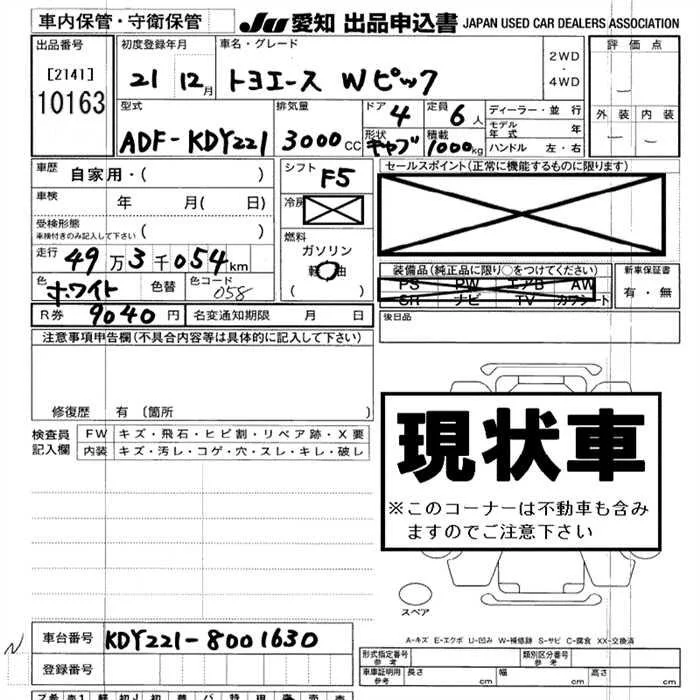 車内保管・守衛保管 JU 愛知 出品申込書 JAPAN USED CAR DEALERS ASSOCIATION
出品番号 初度登録年月 車名・グレード 評価点
[2141] 21 12月 トヨエース Wピック 2WD・4WD
10163 外装 内装
型式 排気量 ドア 4 定員 6人 ディーラー・並行
ADF-KDY221 3000cc 形状 キャブ 積載 1000kg モデル年式 年
ハンドル 左・右
車歴 自家用・( ) シフト F5 セールスポイント(正常に機能するものに限ります)
車検 年 月( 日) 冷房
受検形態
車検付きのみ記入して下さい ( ) 燃料
走行 49万3千054km ガソリン
軽油
( )
装備品(純正品に限り○をつけてください) 新車保証書
PS PW エアB AW 有・無
SR ナビ TV カワシート
色 ホワイト 色替 色コード 058
R券 9040円 名変通知期限 月 日 後日品
注意事項申告欄(不具合内容等は具体的に記入して下さい)
修復歴 有 〔箇所 〕
検査員記入欄 FW キズ・飛石・ヒビ割・リペア跡・X要
内装 キズ・汚レ・コゲ・穴・スレ・キレ・破レ
現状車
※このコーナーは不動車も含み
ますのでご注意下さい
スペア
A-キズ E-エクボ U-凹み W-補修跡 S-サビ C-腐食 XX-交換済
N 車台番号 KDY221-8001630
登録番号
形式指定番号 参考 類別区分番号 参考
車庫証明用 参考 長さ cm 幅 cm 高さ cm